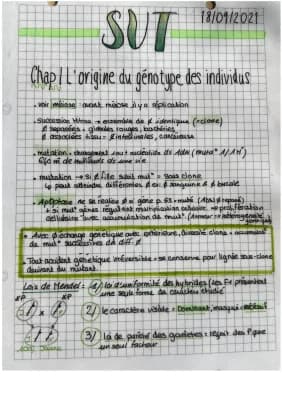 18/09/2021
SVT
Chap 1 L'origine du génotype des individus
• voir méiose : avant méiose il y a réplication
• Succession mitose → ensemble de ø identique (=clone)
ø séparées : globules rouges, bactéries
ø associées tissu = ø intestinales, cancéreuse
• mutation = changement nucléotide de ADN
• mutation → si ø fille subit mut° = sous clone
↳ peut atteindre différentes ø : ø sanguine & ø buccale
• Apoptose ne se réalise ø
si mut° gènes régulant multiplication cellulaire → prolifération
délétère avec accumulation de mut° (tumeur
• Avec ø échange génétique avec extérieure, diversité clone = accumulat°
de mut° successives de diff. ø
• Tout accident génétique irréversible → se conserve pour lignée sous-clone
devient du mutant.
Lois de Mendel : 1/ loi d'uniformité des hybrides (les F1 présentent
une seule forme du caractère étudié
2/ le caractère visible = dominant, masqué = récessif
3/ loi de pureté des gamètes =
un seul facteur